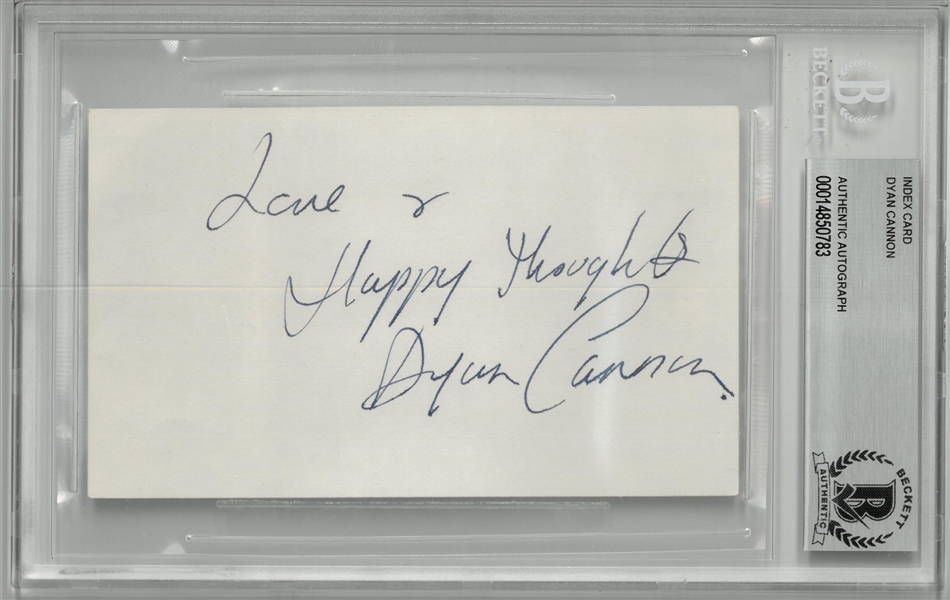 Love &
Happy Thoughts
Dyan Cannon
BECKETT
B
INDEX CARD
DYAN CANNON
AUTHENTIC AUTOGRAPH
00014850783
BECKETT
B
AUTHENTIC